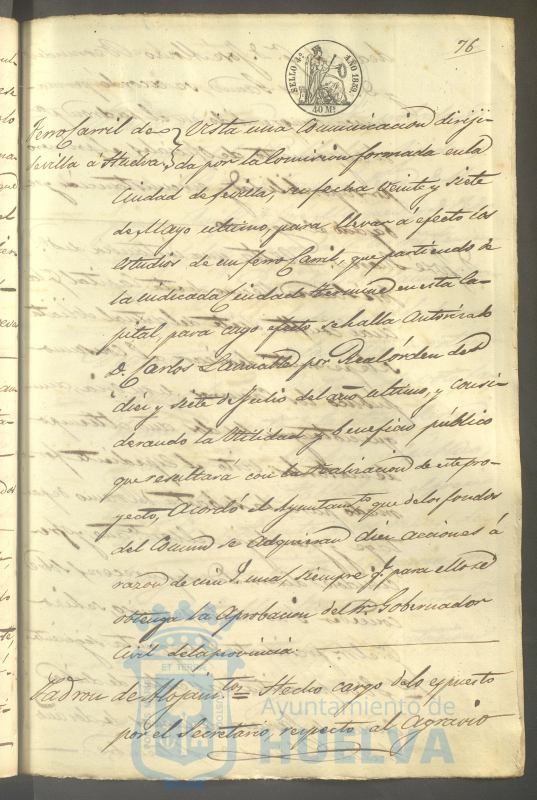 76
SELLO 4.º AÑO 1859.
40 Ms
Ferro Carril de } Vista una Comunicacion diriji-
Sevilla á Huelva } da por la Comision formada en la
Ciudad de Sevilla, su fecha veinte y siete
de Mayo ultimo, para llevar á efecto los
estudios de un ferro Carril, que partiendo de
la indicada Ciudad termine en esta Ca-
pital, para cuyo efecto se halla Autorizado
D. Carlos por Real órden de
diez y siete de Julio del año ultimo, y consi-
derando la Utilidad y beneficio público
que resultará con la realizacion de este pro-
yecto, Acordó el Ayuntamto. que de los fondos
del Comun se adquieran diez acciones á
razon de cien una, siempre q. para ello se
obtenga la Aprobacion del Sr. Gobernador
Civil de la provincia.
Padron de Alojamtos. = Hecho cargo de lo espuesto
por el Secretario, respecto al Agravio
Ayuntamiento de
HUELVA